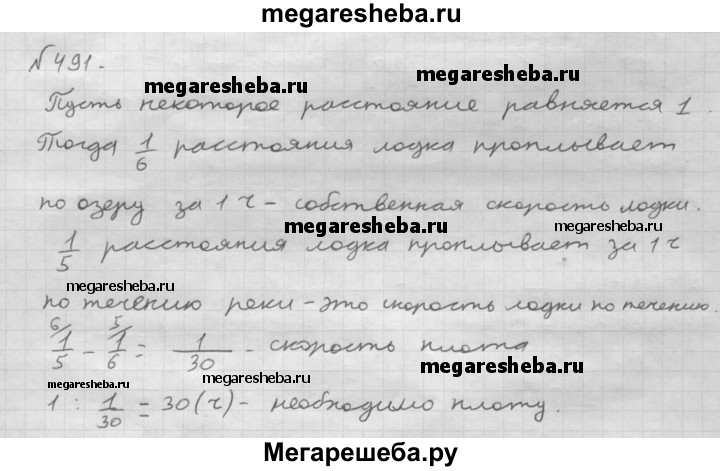 megaresheba.ru
№ 491.
megaresheba.ru
Пусть некоторое расстояние равняется 1.
Тогда 1/6 расстояния лодка проплывает
по озеру за 1 ч - собственная скорость лодки.
megaresheba.ru megaresheba.ru
1/5 расстояния лодка проплывает за 1 ч
megaresheba.ru
по течению реки - это скорость лодки по течению.
6/ 1/5 - 5/ 1/6 = 1/30 - скорость плота
megaresheba.ru megaresheba.ru
1 : 1/30 = 30 (ч) - необходимо плоту.
Мегарешеба.ру